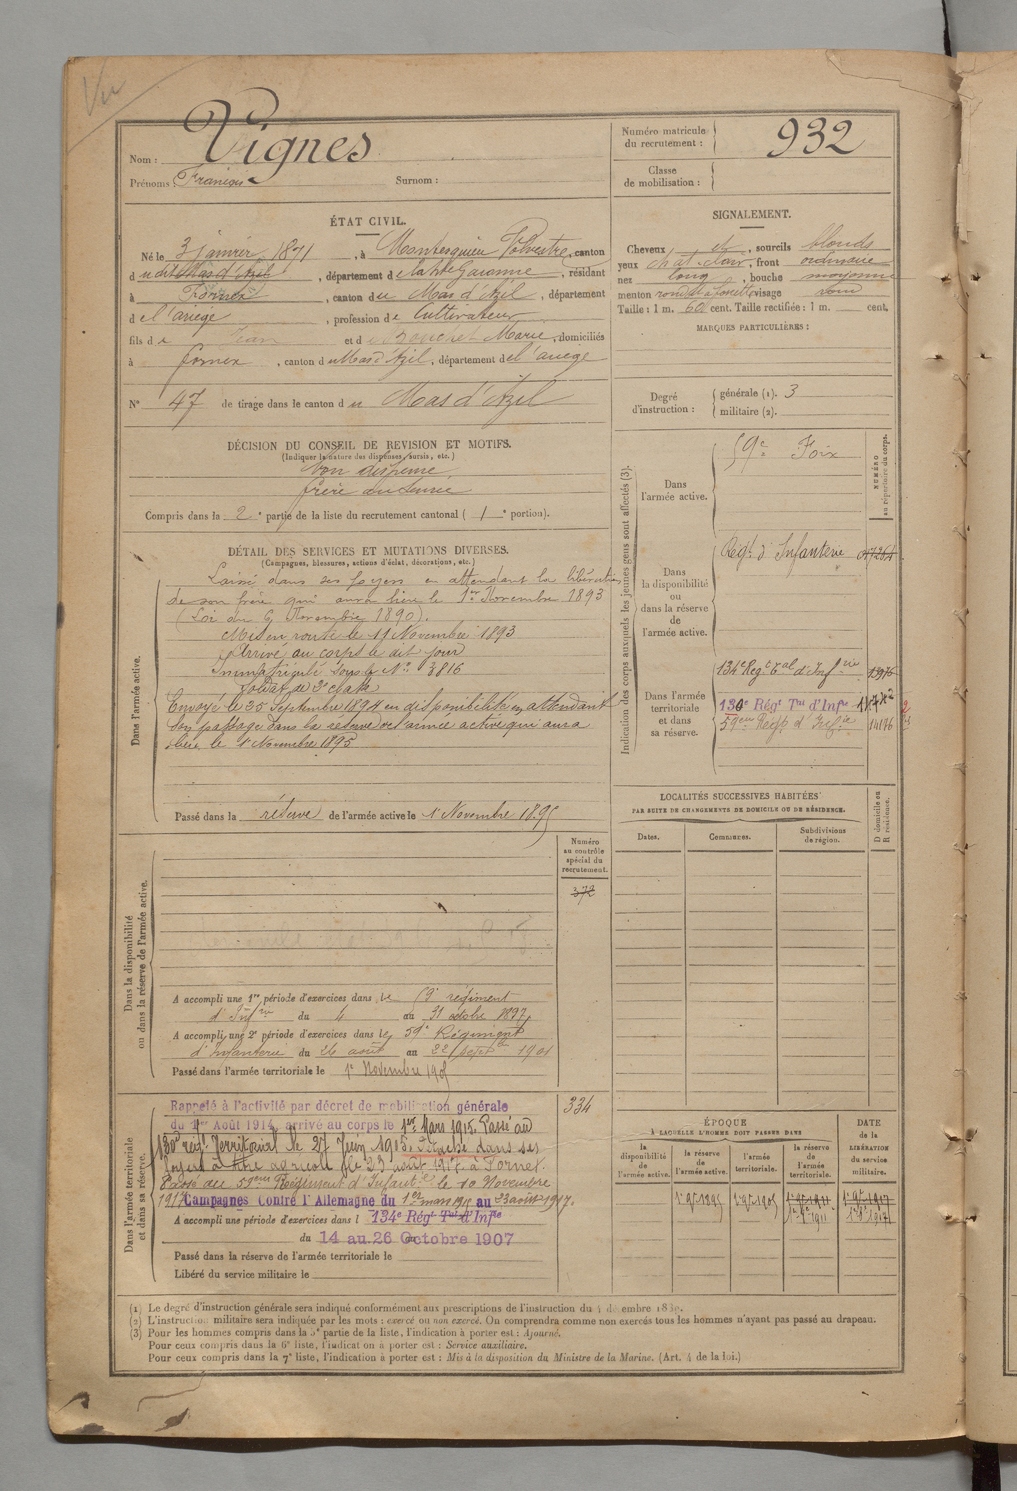 Vu
Nom : Vignes
Prénoms : François Surnom :
Numéro matricule du recrutement : 932
Classe de mobilisation :
ÉTAT CIVIL.
Né le 3 janvier 1871, à Montesquieu Volvestre, canton
dudit Mas d'Azil, département de la hte Garonne, résidant
à Fornex, canton du Mas d'Azil, département
de l'ariège, profession de Cultivateur
fils de Jean et de Marie, domiciliés
à fornex, canton du Mas d'Azil, département de l'ariège
N° 47 de tirage dans le canton du Mas d'Azil
SIGNALEMENT.
Cheveux et, sourcils blonds
yeux chat. clair, front ordinaire
nez long, bouche moyenne
menton rond et à fossette, visage rond
Taille : 1 m. 60 cent. Taille rectifiée : 1 m. cent.
MARQUES PARTICULIÈRES :
Degré d'instruction : générale (1). 3
militaire (2).
DÉCISION DU CONSEIL DE REVISION ET MOTIFS.
(Indiquer la nature des dispenses, sursis, etc.)
Bon dispensé
frère au service
Compris dans la 2e partie de la liste du recrutement cantonal (1e portion).
DÉTAIL DES SERVICES ET MUTATIONS DIVERSES.
(Campagnes, blessures, actions d'éclat, décorations, etc.)
Dans l'armée active.
Laissé dans ses foyers en attendant la libération
de son frère qui aura lieu le 1er Novembre 1893
(Loi du 6 Novembre 1890).
Mis en route le 11 Novembre 1893
Arrivé au corps le dit jour
Immatriculé sous le N° 3816
Soldat de 2e classe
Envoyé le 25 Septembre 1894 en disponibilité en attendant
son passage dans la réserve de l'armée active qui aura
lieu le 1 Novembre 1895
Passé dans la réserve de l'armée active le 1 Novembre 1895
Indication des corps auxquels les jeunes gens sont affectés (3).
Dans l'armée active.
59e Foix
NUMÉRO au répertoire du corps.
Dans la disponibilité ou dans la réserve de l'armée active.
Régt d'Infanterie
Dans l'armée territoriale et dans sa réserve.
134e Régt tal d'Infrie
130e Régt Tal d'Infie
59eme Régt d'Infie 14176
LOCALITÉS SUCCESSIVES HABITÉES
PAR SUITE DE CHANGEMENTS DE DOMICILE OU DE RÉSIDENCE.
Dates. Communes. Subdivisions de région. D domicile ou R résidence.
Dans la disponibilité ou dans la réserve de l'armée active.
Numéro au contrôle spécial du recrutement.
372
A accompli une 1re période d'exercices dans le régiment
d'Infrie du 4 au 31 octobre 1897
A accompli une 2e période d'exercices dans le 59e Régiment
d'Infanterie du 26 août au 22 septbre 1901
Passé dans l'armée territoriale le 1er Novembre 1905
Dans l'armée territoriale et dans sa réserve.
334
Rappelé à l'activité par décret de mobilisation générale
du 1er Août 1914, arrivé au corps le 1er Mars 1915. Passé au
130e régt Territorial le 27 Juin 1915. Détaché dans ses
foyers à titre agricole le 23 août 1917 à Fornex.
Passé au 59eme Régiment d'Infantie le 10 Novembre
1917 Campagnes Contre l'Allemagne du 1er mars 1915 au 23 août 1917.
A accompli une période d'exercices dans l 134e Régt Tal d'Infie
du 14 au 26 Octobre 1907
Passé dans la réserve de l'armée territoriale le
Libéré du service militaire le
ÉPOQUE
À LAQUELLE L'HOMME DOIT PASSER DANS
la disponibilité de l'armée active. la réserve de l'armée active. l'armée territoriale. la réserve de l'armée territoriale.
DATE de la LIBÉRATION du service militaire.
1er 9bre 1895 1er 9bre 1905 1er 9bre 1911 1er 9bre 1917
(1) Le degré d'instruction générale sera indiqué conformément aux prescriptions de l'instruction du 4 décembre 1889.
(2) L'instruction militaire sera indiquée par les mots : exercé ou non exercé. On comprendra comme non exercés tous les hommes n'ayant pas passé au drapeau.
(3) Pour les hommes compris dans la 5e partie de la liste, l'indication à porter est : Ajourné.
Pour ceux compris dans la 6e liste, l'indication à porter est : Service auxiliaire.
Pour ceux compris dans la 7e liste, l'indication à porter est : Mis à la disposition du Ministre de la Marine. (Art. 4 de la loi.)